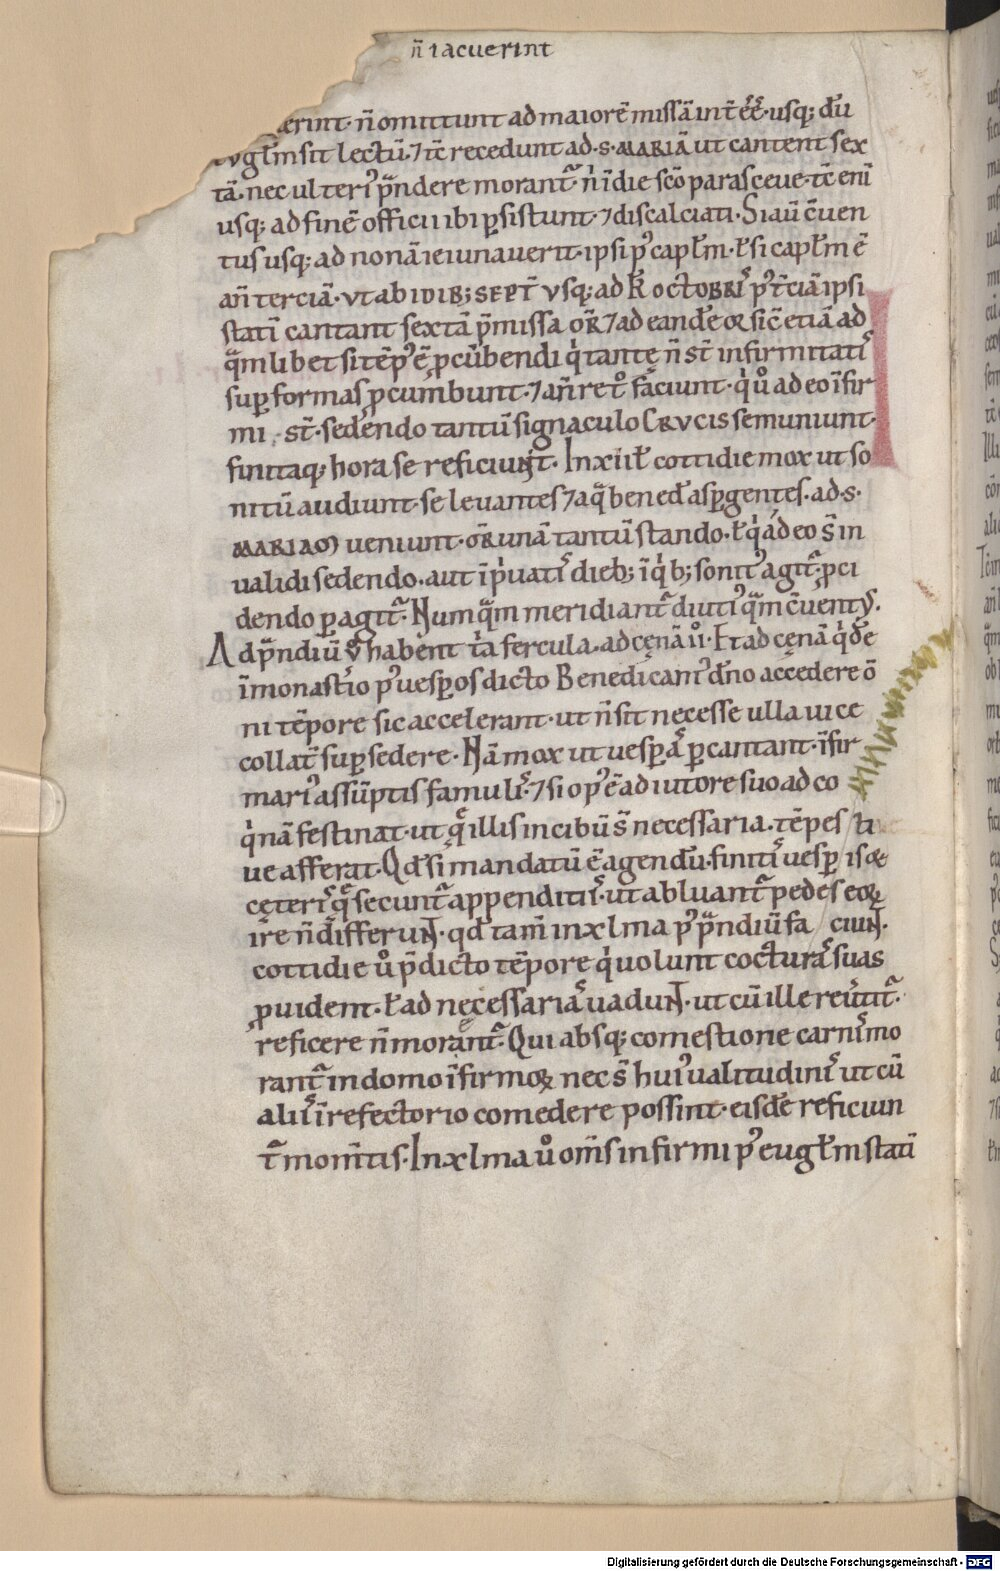 n̄ iacuerint
erint· n̄ omittunt ad maiorē missā int̄ eē·usq; dū
euḡlm sit lectū·⁊ tc̄ recedunt ad·s·MARIĀ ut cantent sex
tā·nec ulteriꝰ p̄ndere morant᷑ n̄ ī die sc̄o parasceue·tc̄ eni
usq; ad finē officii ibi p̱sistunt·⁊ discalciati·Si aū c̄uen
tus usq; ad nonā ieiunauerit·ipsi pꝰ cap̄lm·ł si cap̄lm ē
an̄ terciā·vt ab idib; sept̄ vsq; ad k̄l octobr̄ pꝰ t̄ciā ipsi
statī cantant sextā p̄missa or̄·⁊ ad eandē ⁊ sic̄ etiā ad
q̄mlibet si tēpꝰ ē p̱cūbendi qi tantę n̄ st̄ infirmitatis
sup̱ formas p̱cumbunt·⁊ an̄ ret° faciunt·q°ū adeo īfir
mi·st̄·sedendo tantū signaculo CRVCIS se muniunt·
finitaq; hora se reficiunt·In xii ł cottidie mox ut so
nitū audiunt·se levantes ⁊ aq̄ bened̄ asp̱gentes·ad·s·
MARIAM veniunt·or̄ unā tantū stando·ł qi adeo s̄ in
ualidi sedendo·aut ī p̄uatis dieb; ī qib; sonitꝰ agit᷑·p̱ci
dendo p̱agit᷑·Numq̄m meridiant᷑ diutiꝰ q̄m c̄uentꝰ·
Ad p̄ndiū ū habent t̄a fercula·ad cęnā ii·Et ad cęnā qidē
ī monast̄io pꝰ uesp̱os dicto Benedicamꝰ dn̄o accedere ō
ni tēpore sic accelerant·ut n̄ sit necesse ulla uice
collat̄ sup̱sedere·Nā mox ut uesp̱as p̱cantant·īfir
mariꝰ assūptis famulis·⁊ si opꝰ ē adiutore suo ad co
qinā festinat·ut q̄ illis in cibū s̄ necessaria·tēpesti
ue afferat·Qd̄ si mandatū ē agendū·finitis uesp̱is ⁊
ceteris q̄ secunt᷑ appenditiis·ut abluant᷑ pedes eoꝝ
ire n̄ differunt·qd̄ tam̄ in xlma pꝰ p̄ndiū faciunt·
cottidie ū p̄dicto tēpore qi uolunt cocturas suas
p̱uident·ł ad necessarias uadunt·ut cū ille reūtit᷑·
reficere n̄ morant᷑·Qui absq; comestione carnis mo
rant᷑ in domo īfirmoꝝ nec s̄ huiꝰ ualitudinis ut cū
aliis ī refectorio comedere possint·eisdē reficiun
t᷑ mom̄tis·In xlma ū om̄s infirmi pꝰ euḡlm statī
Digitalisierung gefördert durch die Deutsche Forschungsgemeinschaft - DFG